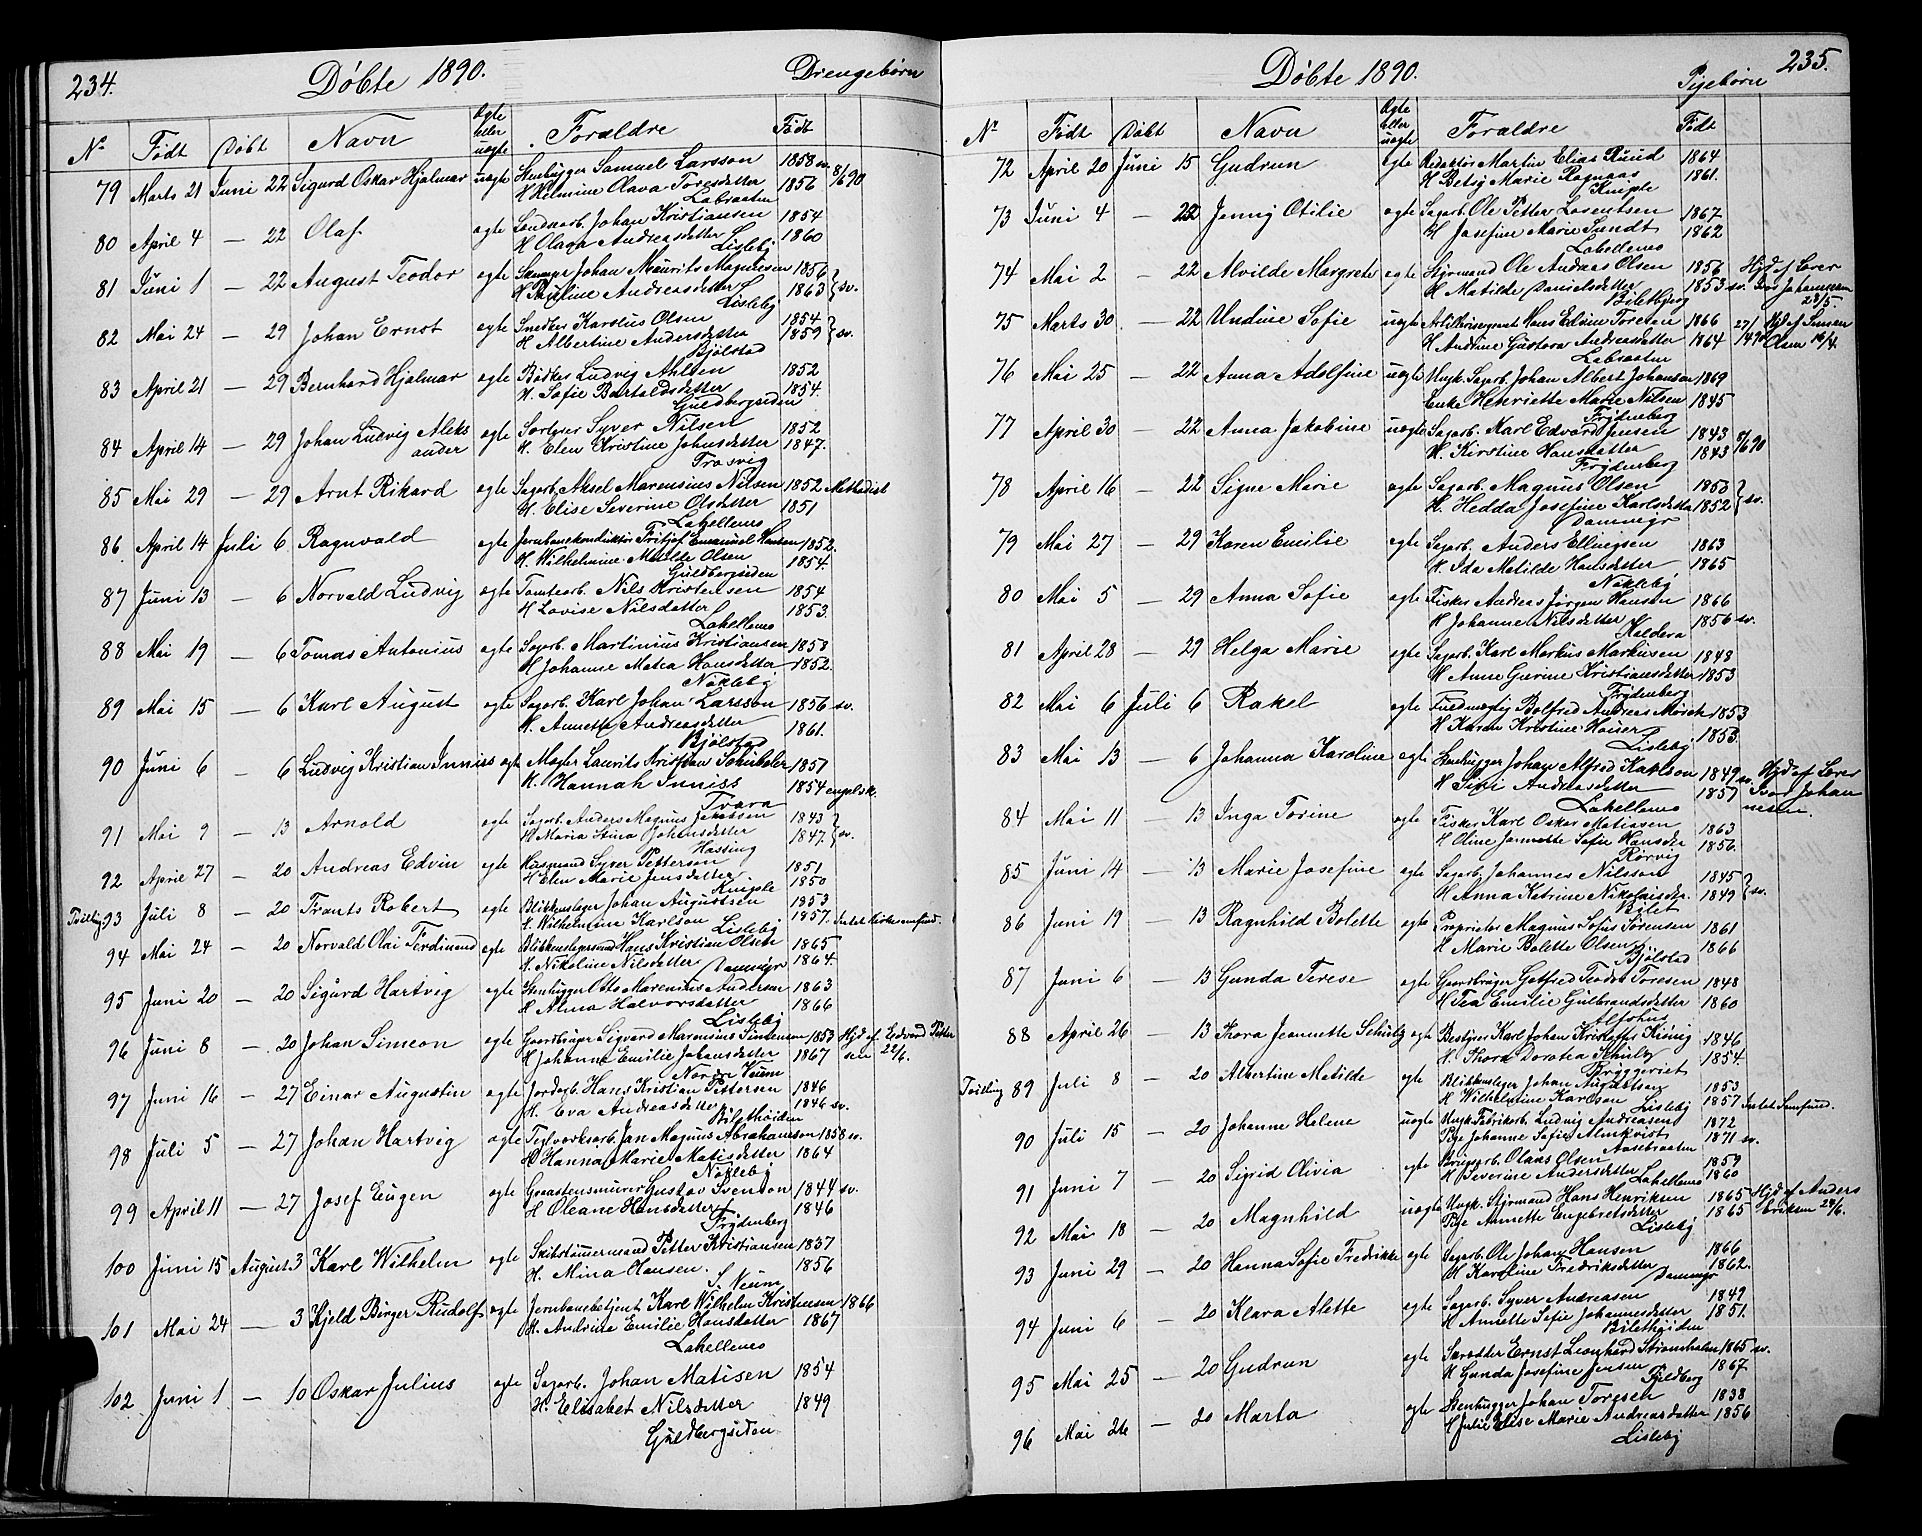 234.
Døbte 1890.
Drengebørn
Nº Født Døbt Navn Ægte eller uægte Forældre Født
79 Marts 21 Juni 22 Sigurd Oskar Hjalmar uægte Stenhugger Samuel Larsson 1858 sv. 8/6 90
H Helmine Olava Toresdatter 1856
Labraaten
80 April 4 — 22 Olaf ægte Johan Kristiansen 1854
H Olaga Andreasdatter 1860
Lisleby
81 Juni 1 — 22 August Teodor ægte Johan Mauritz Magnusen 1856 } sv.
H Pauline Andreasdatter 1863
Lisleby
82 Mai 24 — 29 Johan Ernst ægte Snedker Karolus Olsen 1854 } sv.
H Albertine Andersdatter 1859
Bjølstad
83 April 21 — 29 Bernhard Hjalmar ægte Bødker Ludvig Ahlsen 1852
H. Sofie Bartoldsdatter 1854.
Guldbergsiden
84 April 14 — 29 Johan Ludvig Aleksander ægte Sorterer Syver Nilsen 1852
H. Elen Kristine Johnsdatter 1847.
Trosvig
85 Mai 29 — 29 Arnt Rikard ægte Sagarb. Aksel Marensius Nilsen 1852 Methodist
H. Elise Severine Olsdatter 1851
Lahellemo
86 April 14 Juli 6 Ragnvald ægte Jernbanekonduktør Fritjof Emanuel Hansen 1852.
H. Wilhelmine Matilde Olsen 1854.
Guldbergsiden
87 Juni 13 — 6 Norvald Ludvig ægte Tomtearb. Nils Kristensen 1854
H Lovise Nilsdatter 1853.
Lahellemo
88 Mai 19 — 6 Tomas Antonius ægte Sagarb. Martinius Kristiansen 1858
H Johanne Matea Hansdatter 1852.
Nøkleby
89 Mai 15 — 6 Karl August ægte Sagarb. Karl Johan Larsson 1856 sv.
H. Annette Andreasdatter 1861.
Bjølstad
90 Juni 6 — 6 Ludvig Kristian Inniss ægt Maler Laurits Kristian Schibeler 1857
H. Hannah Inniss 1854 engelsk.
Trara
91 Mai 9 — 13 Arnold ægte Sagarb Anders Magnus Jakobsen 1843 } sv.
H Maria Stina Johansdatter 1847.
Hassing
92 April 27 — 20 Andreas Edvin ægte Husmand Syver Pettersen 1851
H Elen Marie Jensdatter 1850
Kniple
Tvilling 93 Juli 8 — 20 Frants Robert ægte Blikkenslager Johan Augustsen 1853
H. Wilhelmine Karlson 1857. Intet Kirkesamfund.
Lisleby
94 Mai 24 — 20 Norvald Olai Ferdinand ægte Blikkenslagersvend Hans Kristian Olsen 1865
H. Nikoline Nilsdatter 1864.
Dammyr
95 Juni 20 — 20 Sigurd Hartvig ægte Stenhugger Otto Marensius Andersen 1863
H Alma Halvorsdatter 1866
Lisleby
96 Juni 8 — 20 Johan Simeon ægte Gaardbruger Sigvard Marensius Simensen 1853 Hjd af Edvard Petter
H Johanne Emilie Johansdatter 1867 sen 22/6.
Nordre Veum
97 Juni 16 — 27 Einar Augustin ægte Jordarb. Hans Kristian Pettersen 1846
H. Eva Andreasdatter 1846 sv.
Bilethøiden
98 Juli 5 — 27 Johan Hartvig ægte Teglverksarb. Jan Magnus Abrahamson 1858 sv.
H Hanna Marie Matisdatter 1864
Nøkleby
99 April 11 — 27 Josef Eugen ægte Graastensmurer Gustav Svenson 1844 sv.
H Oleane Hansdatter 1846
Frydenberg
100 Juni 15 August 3 Karl Wilhelm ægte Skibstømmermand Petter Kristiansen 1837
H. Mina Clausen. 1856
S. Neum
101 Mai 24 — 3 Kjeld Birger Rudolf ægte Jernbanebetjent Karl Wilhelm Kristensen 1866
H. Andrine Emilie Hansdatter 1867
Lahellemo
102 Juni 1 — 10 Oskar Julius ægte Sagarb. Johan Matisen 1854
H. Elisabet Nilsdatter 1849
Guldbergsiden
235.
Døbte 1890.
Pigebørn
Nº Født Døbt Navn Ægte eller uægte Forældre Født
72 April 20 Juni 15 Gudrun ægte Redaktør Martin Elias Ruud 1864
H Betsy Marie Ragnaas 1861.
Kniple
73 Juni 4 — 22 Jenny Otilie ægte Sagarb. Ole Petter Lorentsen 1867
H Josefine Marie Lundt 1862
Lahellemo
74 Mai 2 — 22 Alvilde Margrete ægte Styrmand Ole Andreas Olsen 1856 Hjd af Lærer
H Matilde Danielsdatter 1853 sv. Ivar Johannesen
Biletberg 28/5.
75 Marts 30 — 22 Undine Sofie uægte Hans Edvin Toresen 1866 27/1 Hjd af Simen
H Andrine Gustava Andreasdatter 1864 1890 Olsen 10/4
Labraaten
76 Mai 25 — 22 Anna Adolfine uægte Ungk. Sagarb. Johan Albert Johanson 1869
Enke Henriette Marie Nilsen 1845
Frydenberg
77 April 30 — 22 Anna Jakobine uægte Sagarb. Karl Edvard Jensen 1843 8/6 90
H. Kirstine Hansdatter 1843
Frydenberg
78 April 16 — 22 Signe Marie ægte Sagarb. Magnus Olsen 1853 } sv.
H. Hedda Josefine Karlsdatter 1852
Dammyr
79 Mai 27 — 29 Karen Emilie ægte Sagarb. Anders Ellingsen 1863
H. Ida Matilde Hansdatter 1865
Nøkleby
80 Mai 5 — 29 Anna Sofie ægte Fisker Andreas Jørgen Hansen 1866
H Johanne Nilsdatter 1856 sv.
Kaldera
81 April 28 — 29 Helga Marie ægte Sagarb. Karl Markus Markusen 1848
H Anne Gurine Kristiansdatter 1853
Frydenberg
82 Mai 6 Juli 6 Rakel ægte Fuldmægtig Bolfred Andreas Mørch 1853
H Karen Kristine Houer 1853
Lisleby
83 Mai 13 — 6 Johanna Karoline ægte Stenhugger Johan Alfred Karlson 1849 sv. Hjd af Lærer
H Siri Andreasdatter 1857 Ivar Johan
Lahellemo nesen.
84 Mai 11 — 13 Inga Torine ægte Fisker Karl Oskar Matiasen 1863
H Oline Jannette Sofie Hansdtr 1856.
Rørvig
85 Juni 14 — 13 Marie Josefine ægte Sagarb. Johannes Nilsson 1845 } sv.
H Anna Katrine Nikolaisdtr. 1849
Bilet
86 Juni 19 — 13 Ragnhild Bolette ægte Proprietær Magnus Sofus Sørensen 1861
H Marie Bolette Olsen 1866
Bjølstad
87 Juni 6 — 13 Gunda Terese ægte Gaardbruger Gotfred Teodor Toresen 1848
H Tea Emilie Gulbrandsdatter 1860
Alshus
88 April 26 — 13 Thora Jeannette Schultz ægte Bestyrer Karl Johan Kristoffer König 1846
H. Thora Dorotea Schultz 1854.
Bryggeriet
Tvilling 89 Juli 8 — 20 Albertine Matilde ægte Blikkenslager Johan Augustsen 1853
H Wilhelmine Karlson 1857 Intet Samfund.
Lisleby
90 Juli 15 — 20 Johanne Helene uægte Ungk. Fabrikarb. Ludvig Andreasen 1872
Pige Johanne Sofie Almkvist 1871 sv.
Aasebraaten
91 Juni 7 — 20 Sigrid Olivia ægte Brugsarb. Olaus Olsen 1859
H Severine Andersdatter 1860
Lahellemo
92 Mai 18 — 20 Magnhild uægte Ungk. Styrmand Hans Henriksen 1865 Hjd af Anders
Pige Annette Engebretsdatter 1865 Eriksen 24/6.
Lisleby
93 Juni 29 — 20 Hanna Sofie Fredrikke ægte Sagarb. Ole Johan Hansen 1866
H Karoline Fredriksdatter 1862.
Dammyr
94 Juni 6 — 20 Klara Alette ægte Sagarb. Syver Andreasen 1849
H Annette Sofie Johannesdatter 1851.
Bilethøiden
95 Mai 25 — 20 Gudrun ægte Ernst Leonhard Strømholm 1865 sv.
H Gunda Josefine Jensen 1867.
96 Mai 26 — 20 Marta ægte Stenhugger Johan Toresen 1838
H Julie Else Marie Andreasdatter 1856
Lisleby